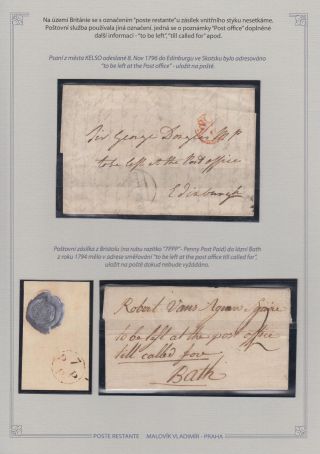 Na území Británie se s označením "poste restante" u zásilek vnitřního styku nesetkáme.
Poštovní služba používala jiná označení, jedná se o poznámky "Post office" doplněné
další informací - "to be left", "till called for" apod.
Psaní z města KELSO odeslané 8. Nov 1796 do Edinburgu ve Skotsku bylo adresováno
"to be left at the Post office" - uložit na poště.
Sir George Douglas M P
to be left at the Post office
Edinburgh
Poštovní zásilka z Bristolu (na rubu razítko "7PPP" - Penny Post Paid) do lázní Bath
z roku 1794 měla v adrese směřování "to be left at the post office till called for",
uložit na poště dokud nebude vyžádáno.
Robert Vans Agnew Esqire
to be left at the post office
till called fore
Bath
POSTE RESTANTE MALOVÍK VLADIMÍR - PRAHA